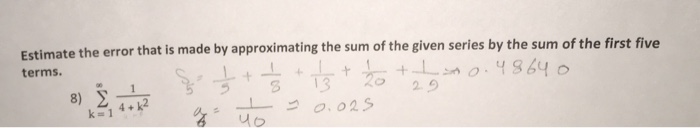 Estimate the error that is made by approximating the sum of the given series by the sum of the first five
terms.
8) ∞ Σ k=1 1/(4+k²)
S₅ = 1/5 + 1/8 + 1/13 + 1/20 + 1/29 ≈ 0.48640
a₆ = 1/40 = 0.025